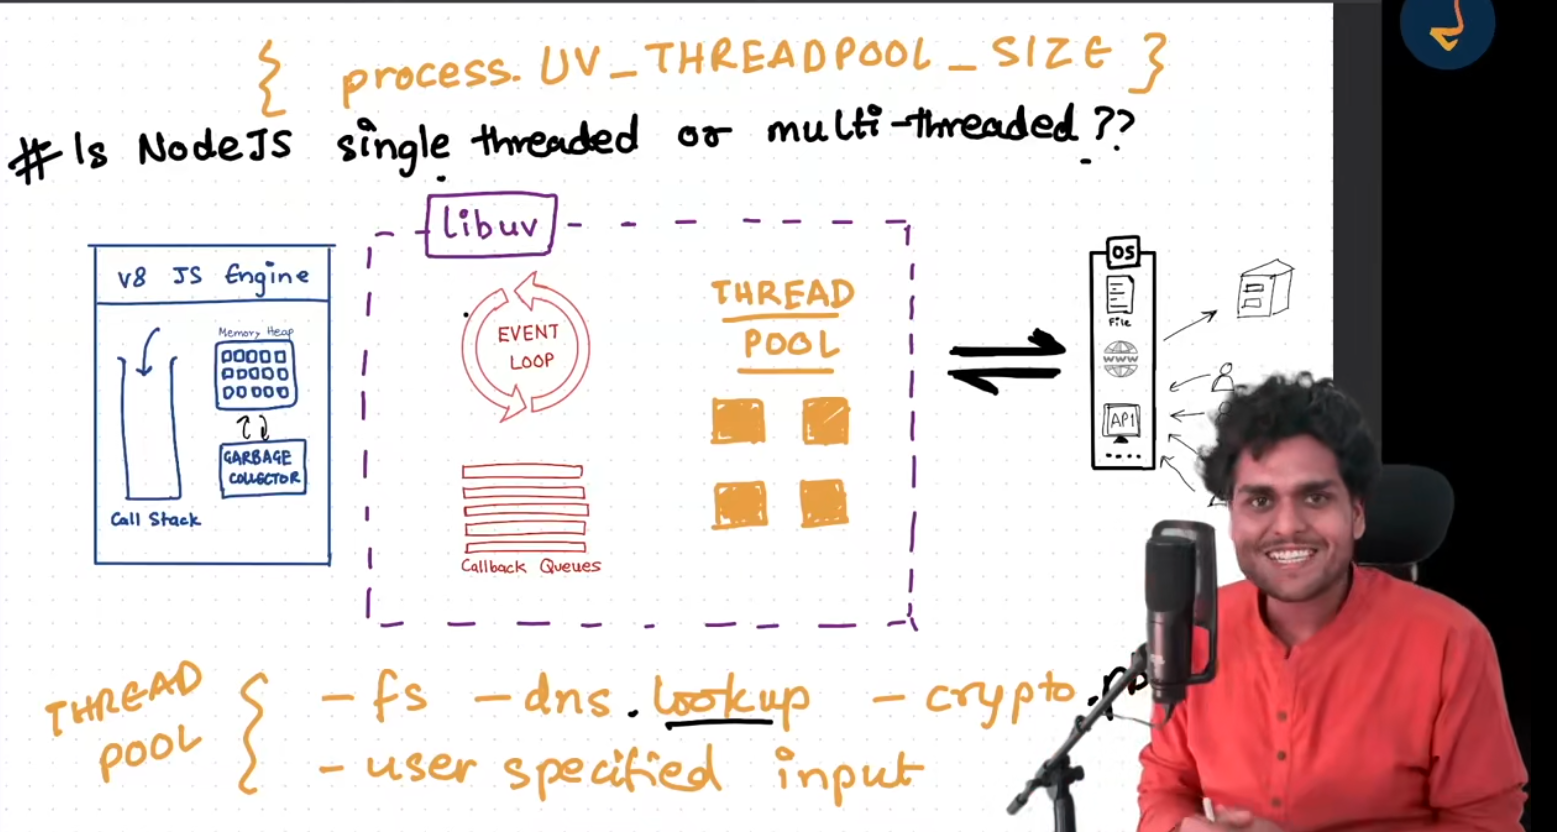 { process. UV_THREADPOOL_SIZE }
# Is NodeJS single threaded or multi-threaded ??
libuv
V8 JS Engine
Memory Heap
GARBAGE
COLLECTOR
Call Stack
EVENT
LOOP
Callback Queues
THREAD
POOL
OS
File
WWW
API
THREAD
POOL
- fs - dns.lookup - crypto.
- user specified input